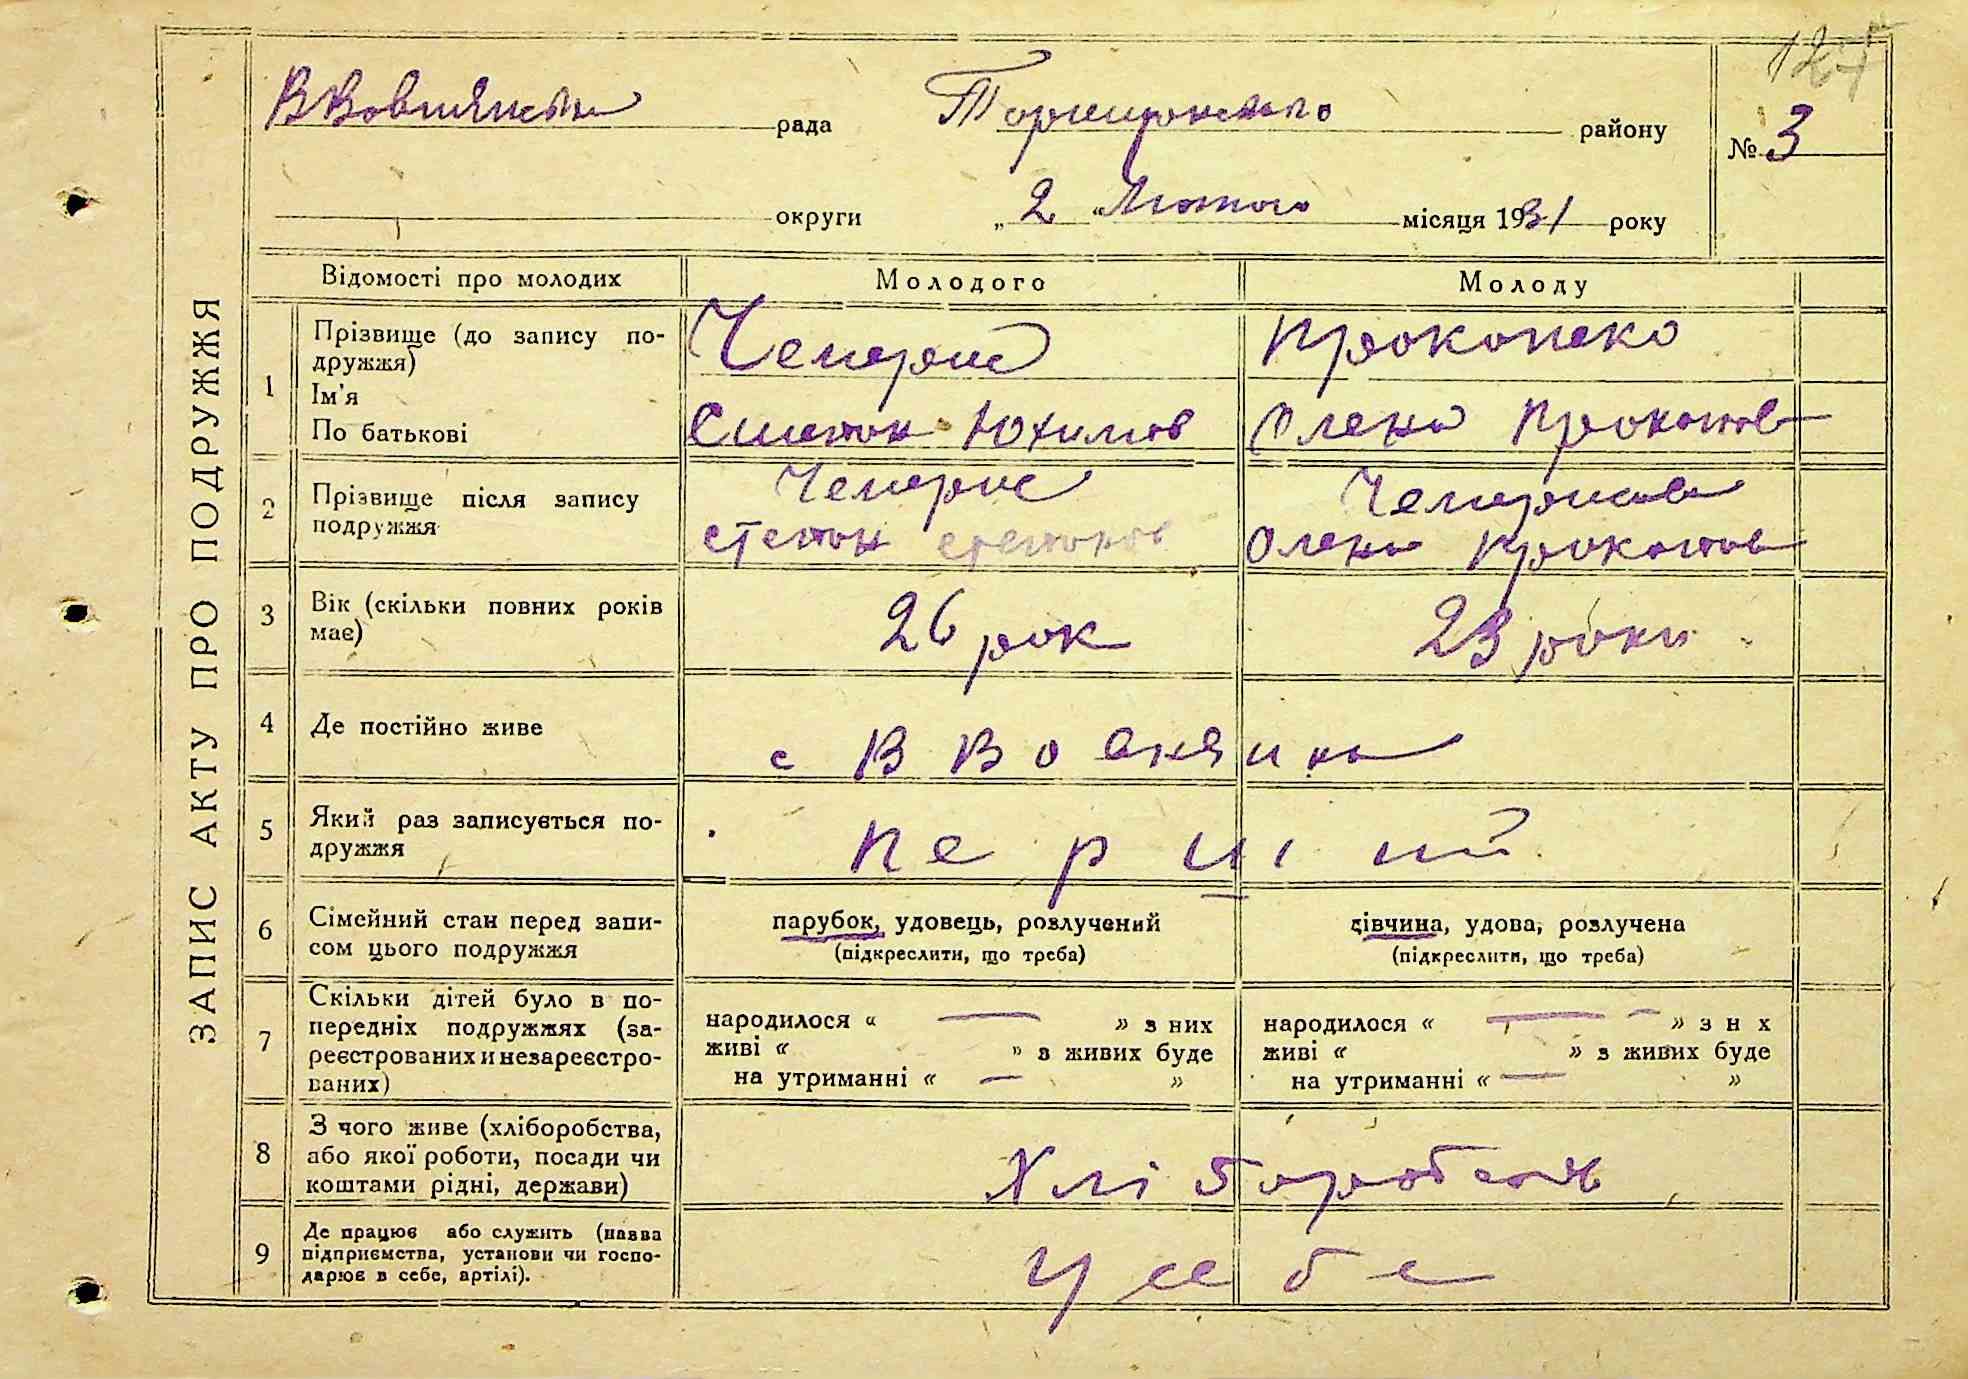 127
ЗАПИС АКТУ ПРО ПОДРУЖЖЯ
рада району № 3
округи „ 2 “ Лютого місяця 1931 року
Відомості про молодих Молодого Молоду
1 Прізвище (до запису по-
дружжя) Чеперис Прокопеко
Ім'я
По батькові Степан Юхимов Олена Прокопов
2 Прізвище після запису
подружжя Чеперис
Степан Степанов Олена Прокопов
3 Вік (скільки повних років
має) 26 рок 23 роки
4 Де постійно живе с В Вовнянка
5 Який раз записується по-
дружжя перший
6 Сімейний стан перед запи-
сом цього подружжя
парубок, удовець, розлучений дівчина, удова, розлучена
(підкреслити, що треба) (підкреслити, що треба)
7 Скільки дітей було в по-
передніх подружжях (за-
реєстрованих и незареєстро-
ваних)
народилося « — » з них народилося « — » з н х
живі « » з живих буде живі « » з живих буде
на утриманні « — » на утриманні « — »
8 З чого живе (хліборобства,
або якої роботи, посади чи
коштами рідні, держави) Хліборобство
9 Де працює або служить (назва
підприємства, установи чи госпо-
дарює в себе, артілі). У себе